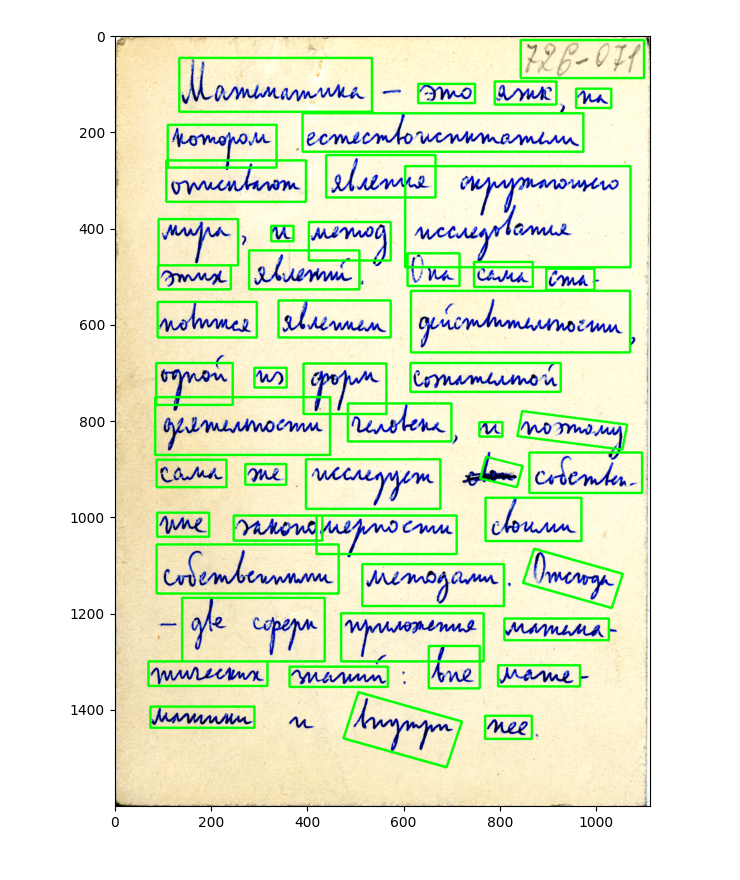 726-071
Математика — это язык, на
котором естествоиспытатели
описывают явления окружающего
мира, и метод исследования
этих явлений. Она сама ста-
новится явлением действительности,
одной из форм сознательной
деятельности человека, и поэтому
сама же исследует собствен-
ные закономерности своими
собственными методами. Отсюда
— две сферы приложения матема-
тических знаний: вне мате-
матики и внутри нее.
0
200
400
600
800
1000
1200
1400
0 200 400 600 800 1000